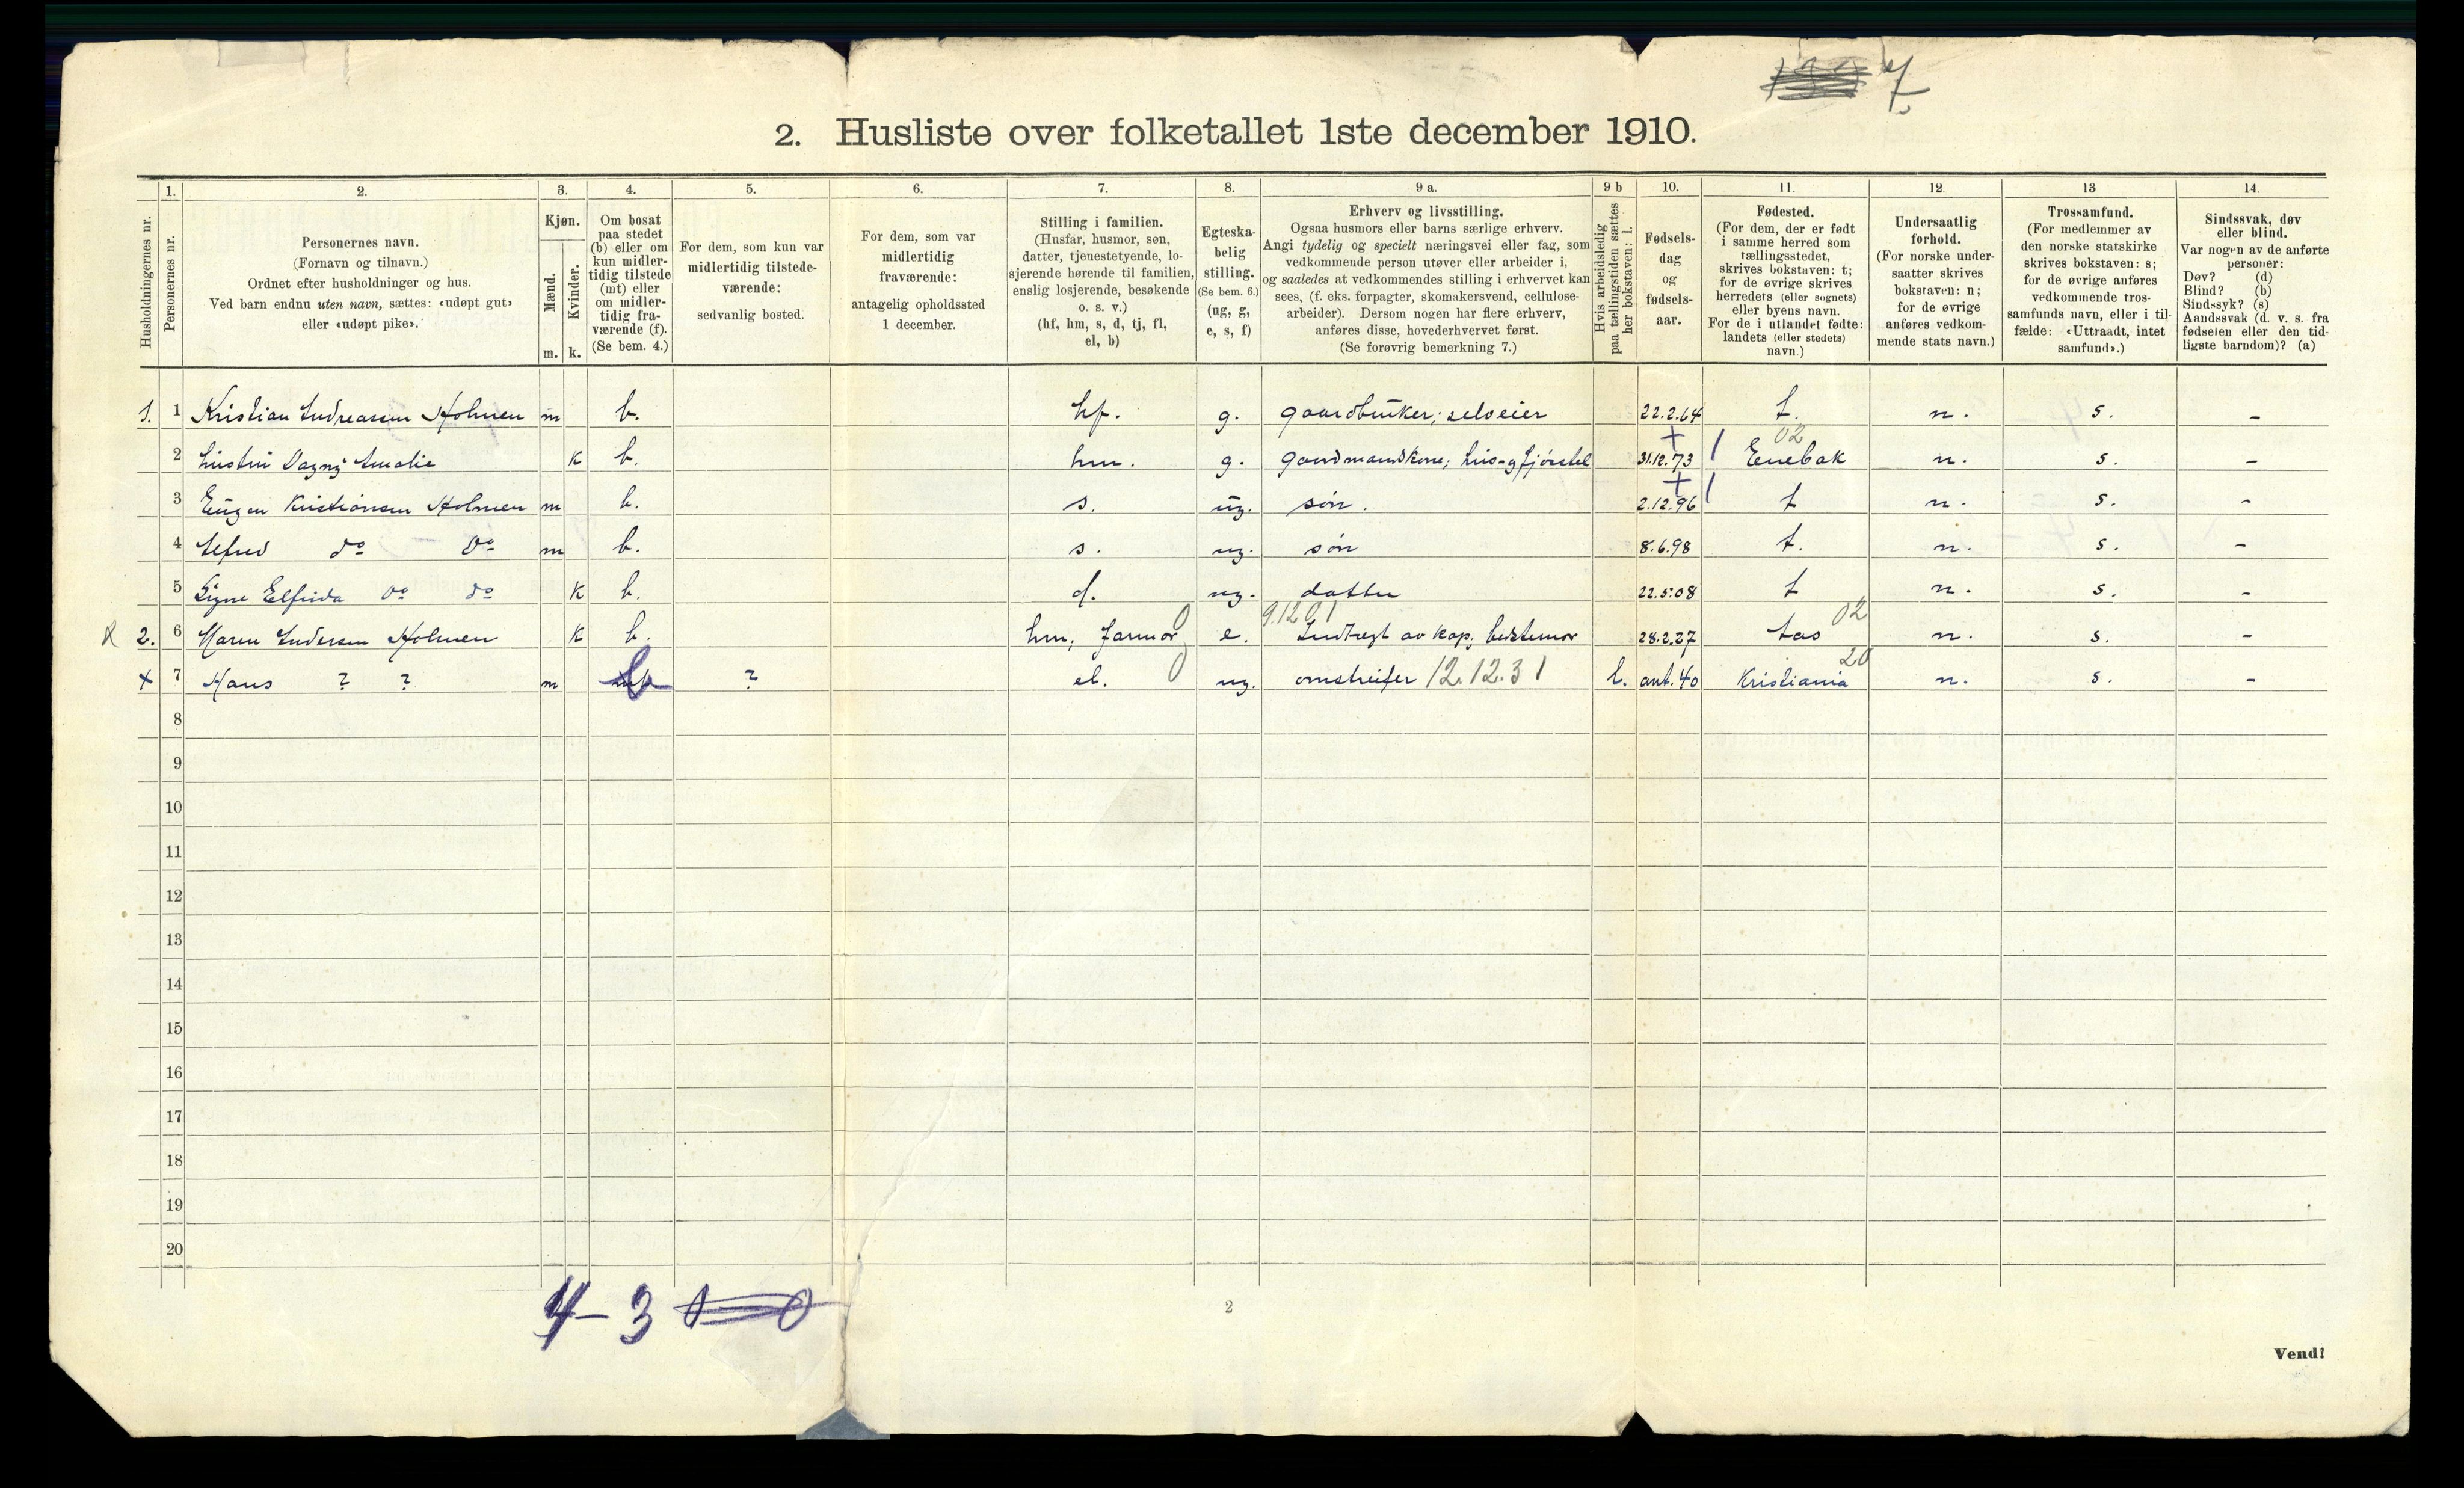 7
2. Husliste over folketallet 1ste december 1910.
Husholdningernes nr.
1.
Personernes nr.
2.
Personernes navn.
(Fornavn og tilnavn.)
Ordnet efter husholdninger og hus.
Ved barn endnu uten navn, sættes: «udøpt gut»
eller «udøpt pike».
3.
Kjøn.
Mænd.
Kvinder.
m. k.
4.
Om bosat
paa stedet
(b) eller om
kun midler-
tidig tilstede
(mt) eller
om midler-
tidig fra-
værende (f).
(Se bem. 4.)
5.
For dem, som kun var
midlertidig tilstede-
værende:
sedvanlig bosted.
6.
For dem, som var
midlertidig
fraværende:
antagelig opholdssted
1 december.
7.
Stilling i familien.
(Husfar, husmor, søn,
datter, tjenestetyende, lo-
sjerende hørende til familien,
enslig losjerende, besøkende
o. s. v.)
(hf, hm, s, d, tj, fl,
el, b)
8.
Egteska-
belig
stilling.
(Se bem. 6.)
(ug, g,
e, s, f)
9 a.
Erhverv og livsstilling.
Ogsaa husmors eller barns særlige erhverv.
Angi tydelig og specielt næringsvei eller fag, som
vedkommende person utøver eller arbeider i,
og saaledes at vedkommendes stilling i erhvervet kan
sees, (f. eks. forpagter, skomakersvend, cellulose-
arbeider). Dersom nogen har flere erhverv,
anføres disse, hovederhvervet først.
(Se forøvrig bemerkning 7.)
9 b
Hvis arbeidsledig
paa tællingstiden sættes
her bokstaven: l.
10.
Fødsels-
dag
og
fødsels-
aar.
11.
Fødested.
(For dem, der er født
i samme herred som
tællingsstedet,
skrives bokstaven: t;
for de øvrige skrives
herredets (eller sognets)
eller byens navn.
For de i utlandet fødte:
landets (eller stedets)
navn.)
12.
Undersaatlig
forhold.
(For norske under-
saatter skrives
bokstaven: n;
for de øvrige
anføres vedkom-
mende stats navn.)
13
Trossamfund.
(For medlemmer av
den norske statskirke
skrives bokstaven: s;
for de øvrige anføres
vedkommende tros-
samfunds navn, eller i til-
fælde: «Uttraadt, intet
samfund».)
14.
Sindssvak, døv
eller blind.
Var nogen av de anførte
personer:
Døv? (d)
Blind? (b)
Sindssyk? (s)
Aandssvak (d. v. s. fra
fødselen eller den tid-
ligste barndom)? (a)
1. 1 Kristian Andreassen Holmen m b. hf. g. gaardbruker; selveier 22.2.64 t. n. s. -
02
2 hustru Dagny Amalie k b. hm. g. gaardmandskone; hus- og fjøsstel 31.12.73 Enebak n. s. -
3 Eugen Kristiansen Holmen m b. s. ug. søn. 2.12.96 t n. s. -
4 Alfred do do m b. s. ug. søn 8.6.98 t. n. s. -
5 Signe Elfrida do do k b. d. ug. datter 22.5.08 t n. s. -
0 9.12.01 02
2. 6 Maren Andersen Holmen k b. hm; farmor e. Indtægt av kap; bedstemor 28.2.27 n. s. -
x 7 Hans ? ? m b ? el. 0 ug. omstreifer 12.12.31 l. ant. 40 Kristiania 20 n. s. -
8
9
10
11
12
13
14
15
16
17
18
19
20
4 - 3
2
Vend!